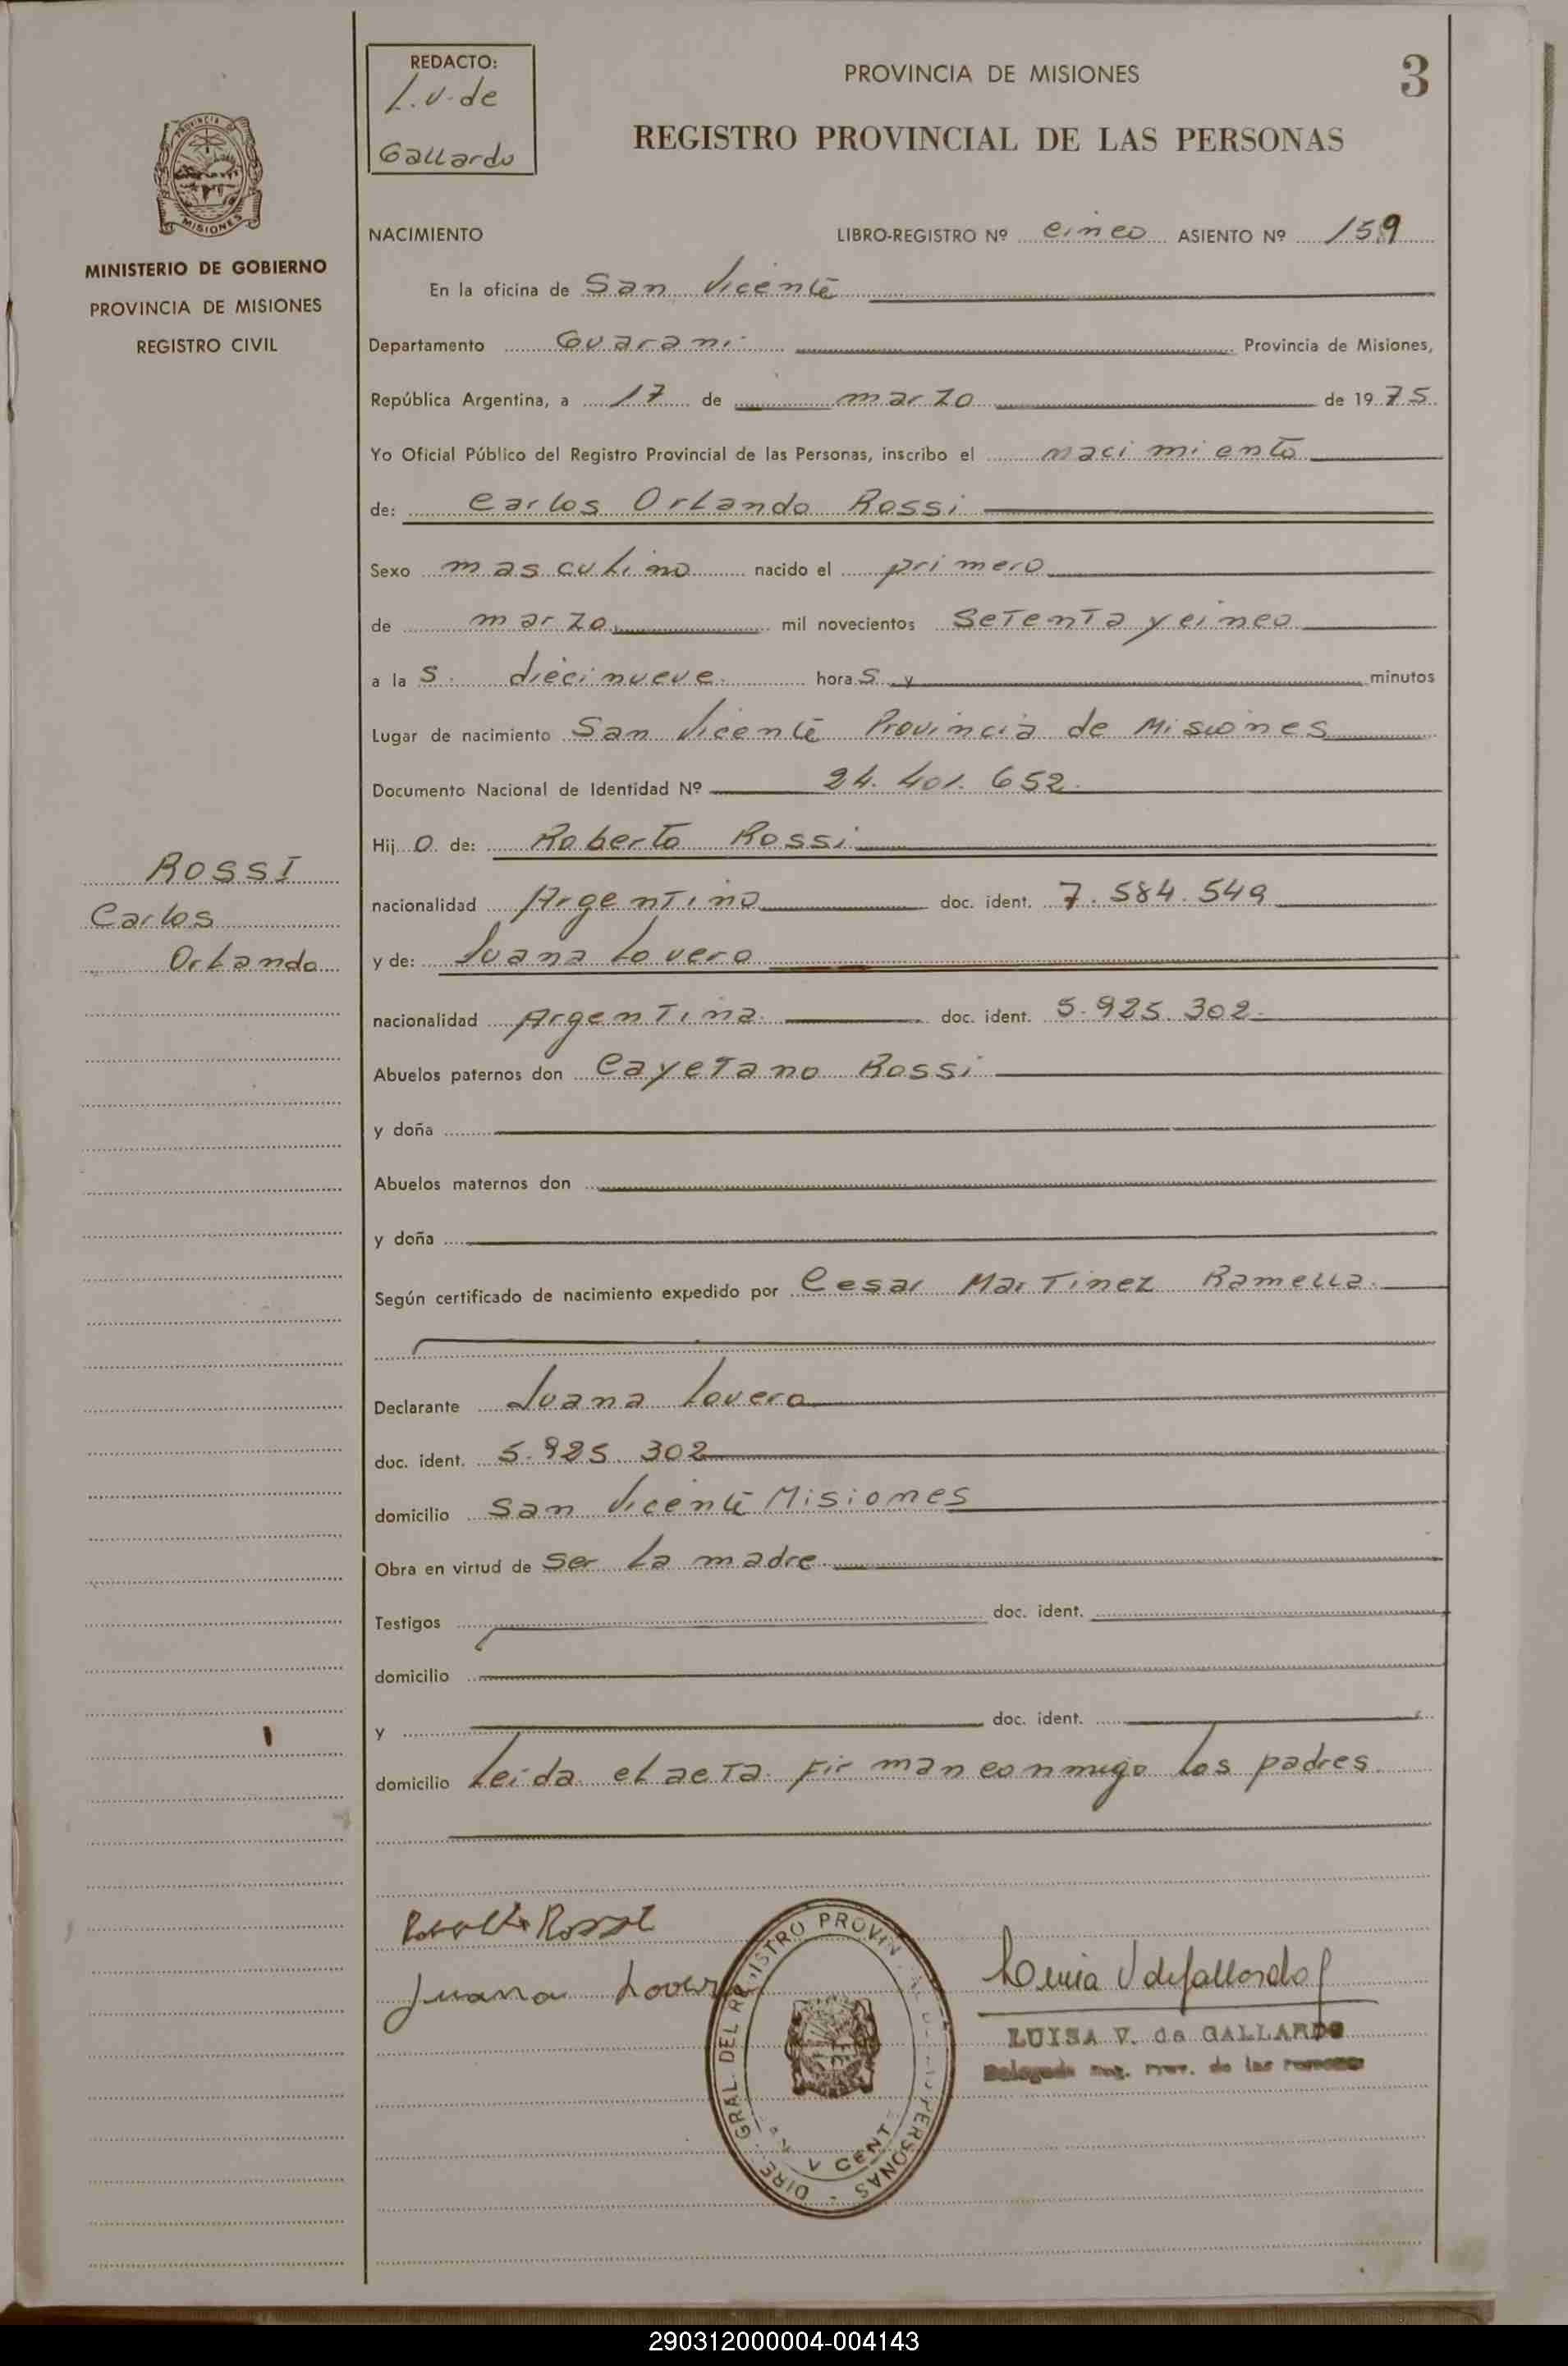 REDACTO:
L.V. de
Gallardo
PROVINCIA DE MISIONES
3
REGISTRO PROVINCIAL DE LAS PERSONAS
PROVINCIA DE
MISIONES
MINISTERIO DE GOBIERNO
PROVINCIA DE MISIONES
REGISTRO CIVIL
NACIMIENTO LIBRO-REGISTRO Nº cinco ASIENTO Nº 159
En la oficina de San Vicente
Departamento Guarani Provincia de Misiones,
República Argentina, a 17 de marzo de 1975
Yo Oficial Público del Registro Provincial de las Personas, inscribo el nacimiento
de: Carlos Orlando Rossi
Sexo masculino nacido el primero
de marzo mil novecientos setenta y cinco
a las diecinueve horas y minutos
Lugar de nacimiento San Vicente Provincia de Misiones
Documento Nacional de Identidad Nº 24.401.652
Hijo de: Roberto Rossi
nacionalidad Argentino doc. ident. 7.584.549
y de: Juana Lovera
nacionalidad Argentina doc. ident. 5.925.302
Abuelos paternos don Cayetano Rossi
y doña
Abuelos maternos don
y doña
Según certificado de nacimiento expedido por Cesar Martinez Ramella
Declarante Juana Lovera
doc. ident. 5.925.302
domicilio San Vicente Misiones
Obra en virtud de ser la madre
Testigos doc. ident.
domicilio
y doc. ident.
domicilio Leida el acta firman conmigo los padres
ROSSI
Carlos
Orlando
Roberto Rossi
Juana Lovera
Luisa V de Gallardo
LUISA V. de GALLARDO
Delegada Reg. Prov. de las Personas
290312000004-004143